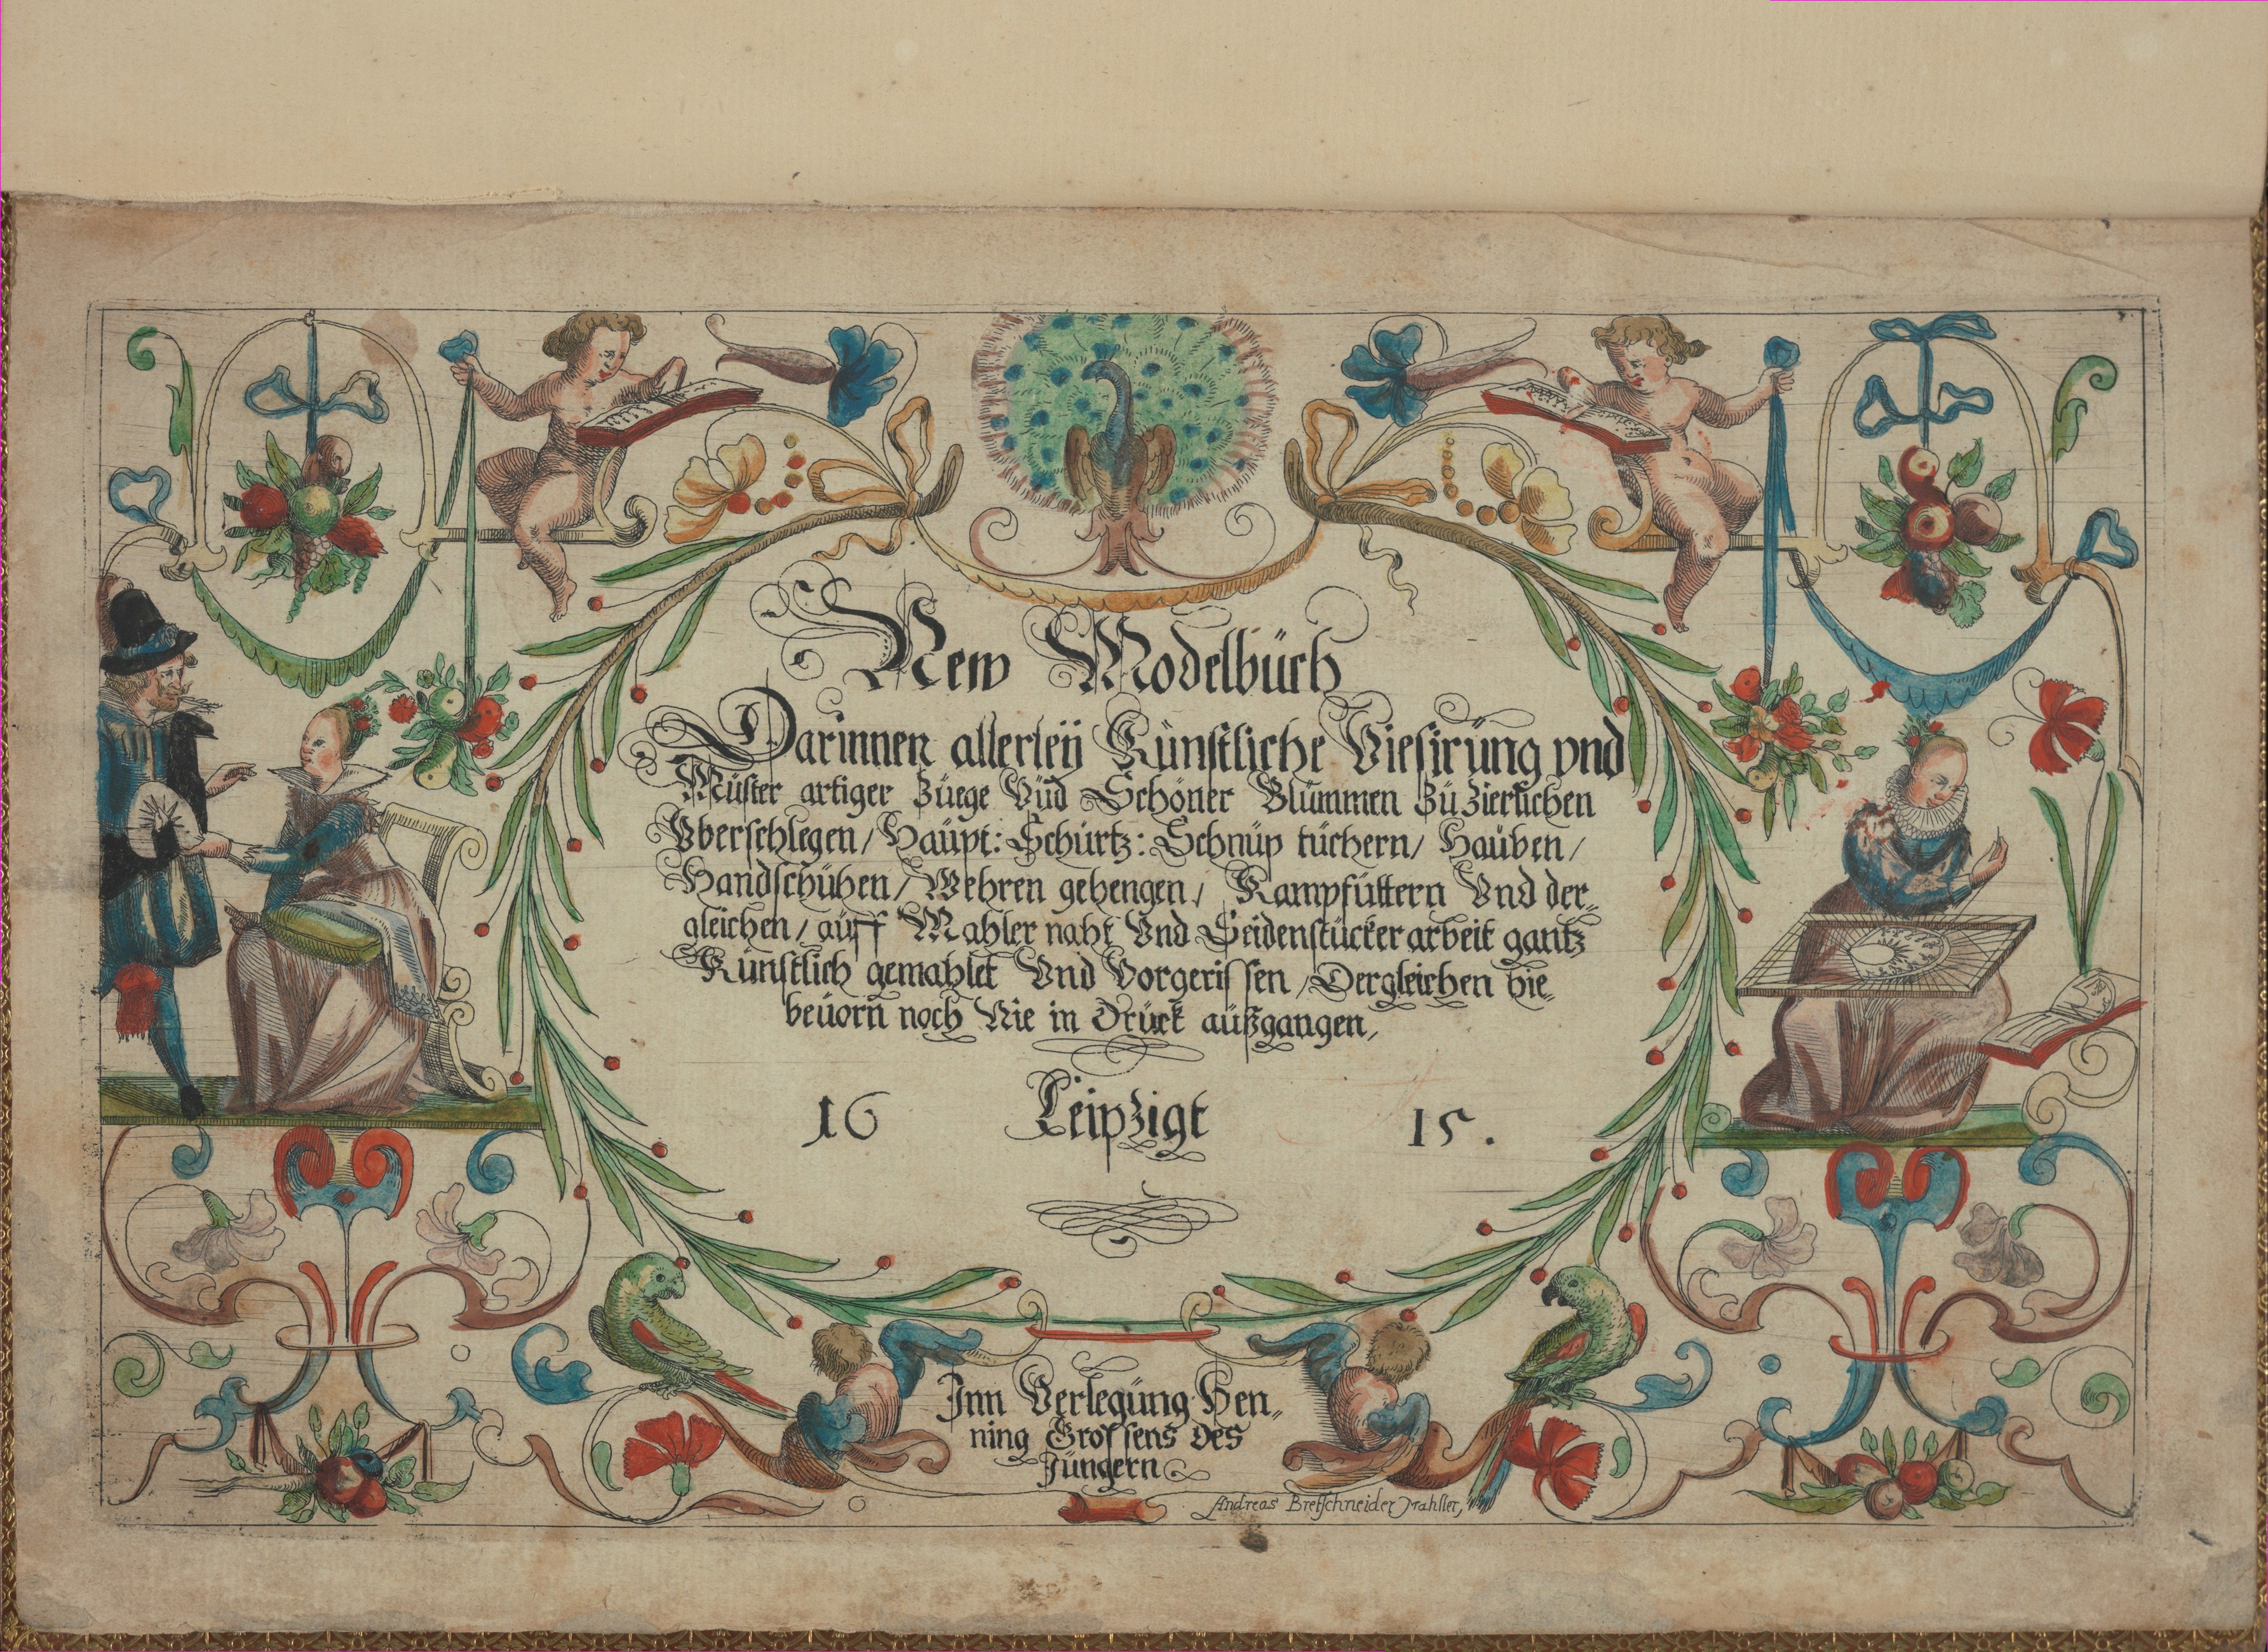 New Modelbüch
Darinnen allerleÿ Künstliche Viesirüng vnd
Müster artiger Züege Vnd Schöner Blümmen Zü Zierlichen
Vberschlegen / Haüpt: Schürtz: Schnüp tüchern / Haüben /
Handschühen / Wehren gehengen / Kampfüttern Vnd der„
gleichen / aüff Mahler naht Vnd Seidenstücker arbeit gantz
Künstlich gemahlet Vnd Vorgerissen / Dergleichen hie„
beüorn noch Nie in Drück aüßgangen,
16 Leipzigt 15.
Inn Verlegüng Hen„
ning Grossens Des
Jüngern
Andreas Bretschneider Mahller,